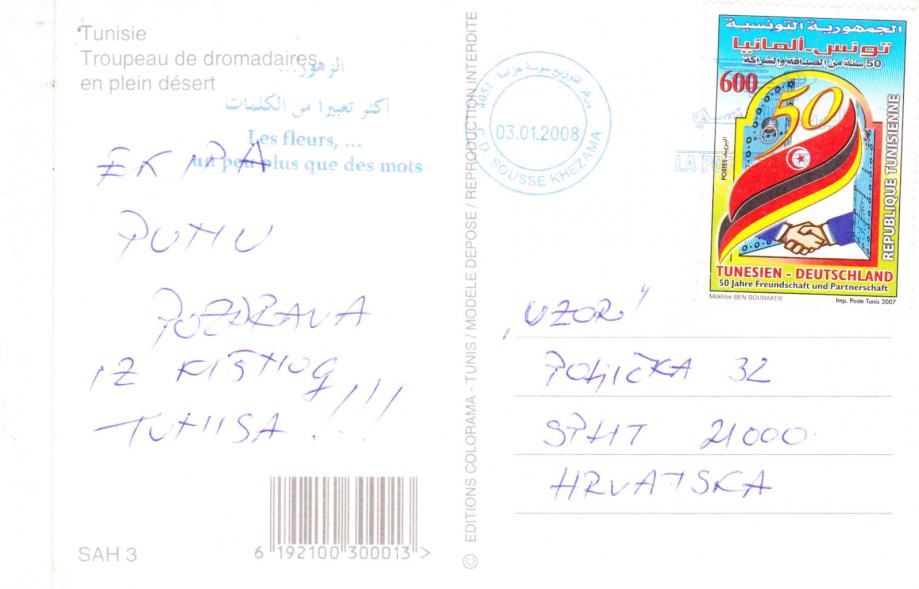 Tunisie
Troupeau de dromadaires
en plein désert
الزهور...
أكثر تعبيرا من الكلمات
Les fleurs, ...
un peu plus que des mots
PUNU
POZDRAVA
IZ KIŠNOG
TUNISA !!!
SAH 3
6 192100 300013 >
© EDITIONS COLORAMA - TUNIS / MODELE DEPOSE / REPRODUCTION INTERDITE
4051
03.01.2008
C D SOUSSE KHEZAMA
LA
الجمهورية التونسية
تونس-ألمانيا
50 سنة من الصداقة والشراكة
600
50
البريد - POSTES
REPUBLIQUE TUNISIENNE
TUNESIEN - DEUTSCHLAND
50 Jahre Freundschaft und Partnerschaft
Mokhtar BEN BOUBAKER
Imp. Poste Tunis 2007
"UZOR"
POLJIČKA 32
SPLIT 21000
HRVATSKA